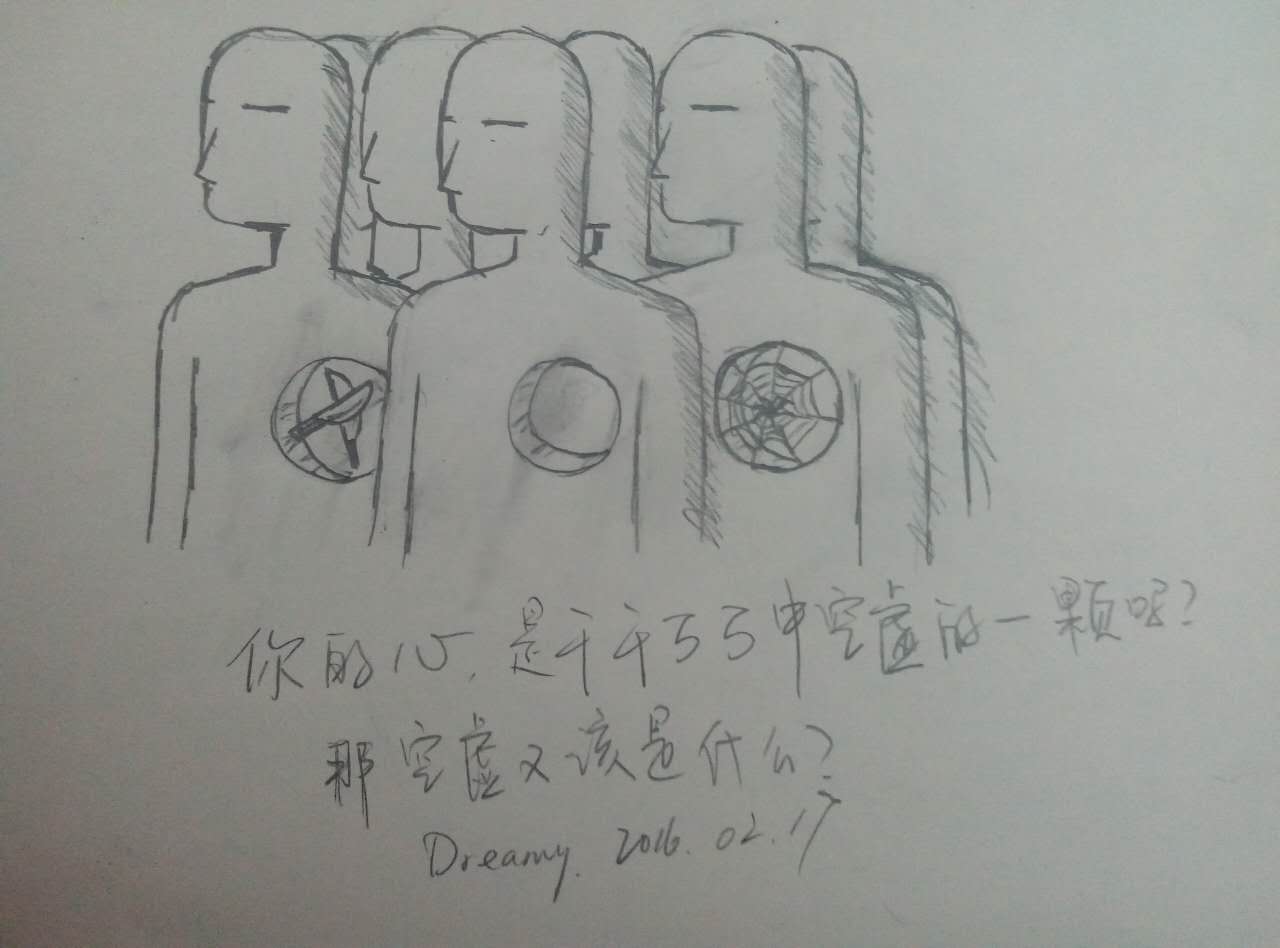 你的心,是千千万万中空虚的一颗呢?
那空虚又该是什么?
Dreamy. 2016.02.17